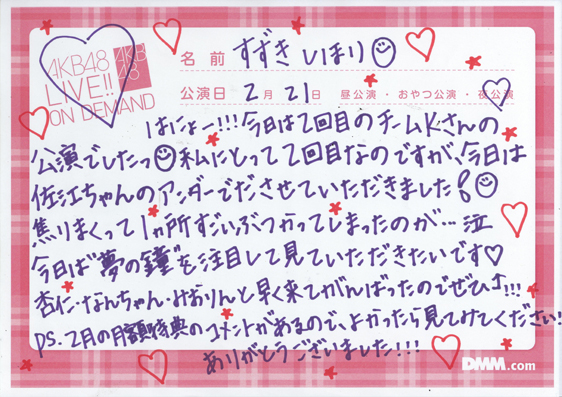 AKB48
LIVE!!
ON DEMAND
AKB
48
名前 すずき しほり
公演日 2月 21日 昼公演・おやつ公演・夜公演
はにょー!!!今日は2回目のチームKさんの
公演でしたっ 私にとって2回目なのですが、今日は
佐江ちゃんのアンダーでださせていただきました!
焦りまくって1ヵ所すごいぶつかってしまったのが…泣
今日は"夢の鐘"を注目して見ていただきたいです♡
杏仁・なんちゃん・みおりんと早く来てがんばったのでぜひ!!!
PS. 2月の月額特典のコメントがあるので、よかったら見てみてください!!
ありがとうございました!!!
DMM.com